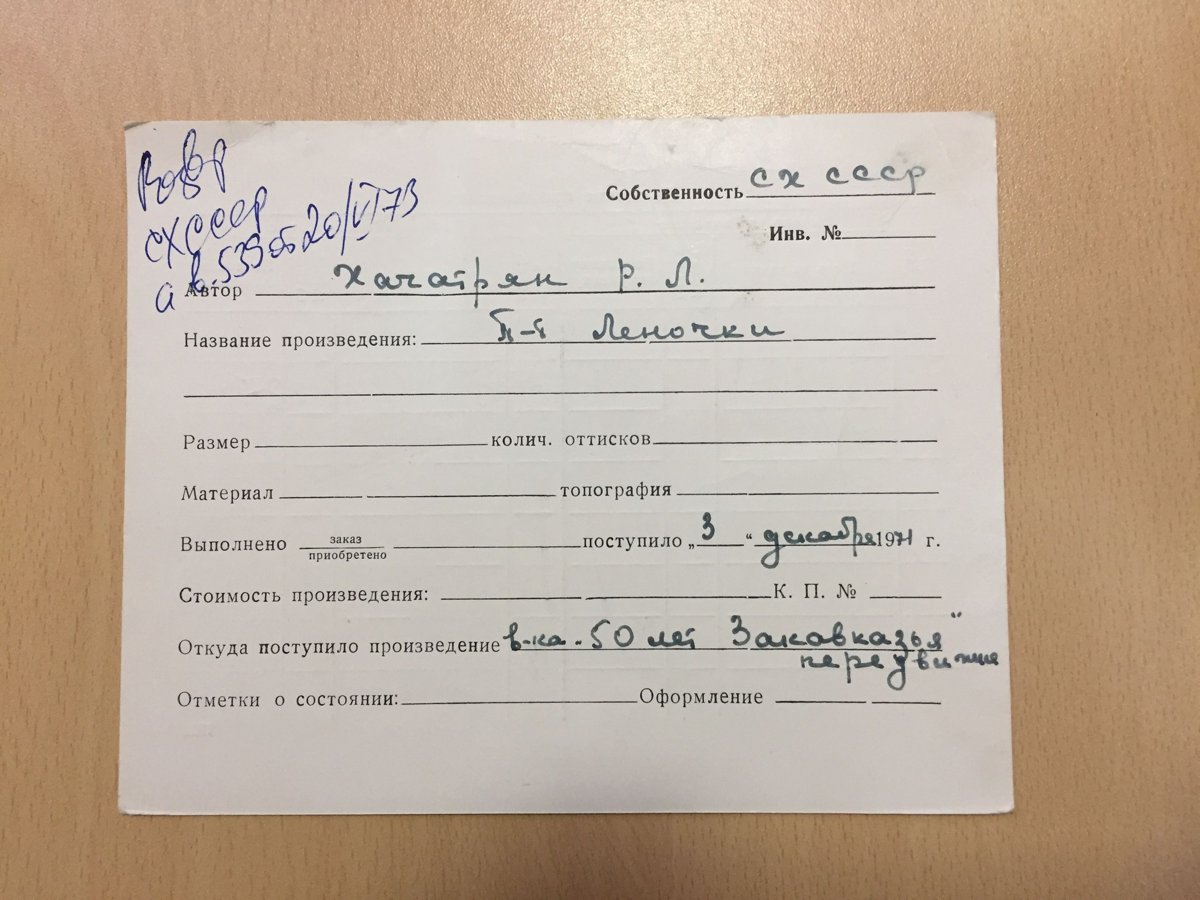 Возвр
СХ СССР
а в. 539 от 20/VI 73
Собственность СХ СССР
Инв. №
Автор Хачатрян Р. Л.
Название произведения: П-т Леночки
Размер колич. оттисков
Материал топография
Выполнено заказ приобретено поступило „3“ декабря 1971 г.
Стоимость произведения: К. П. №
Откуда поступило произведение в-ка „50 лет Закавказья"
Отметки о состоянии: Оформление